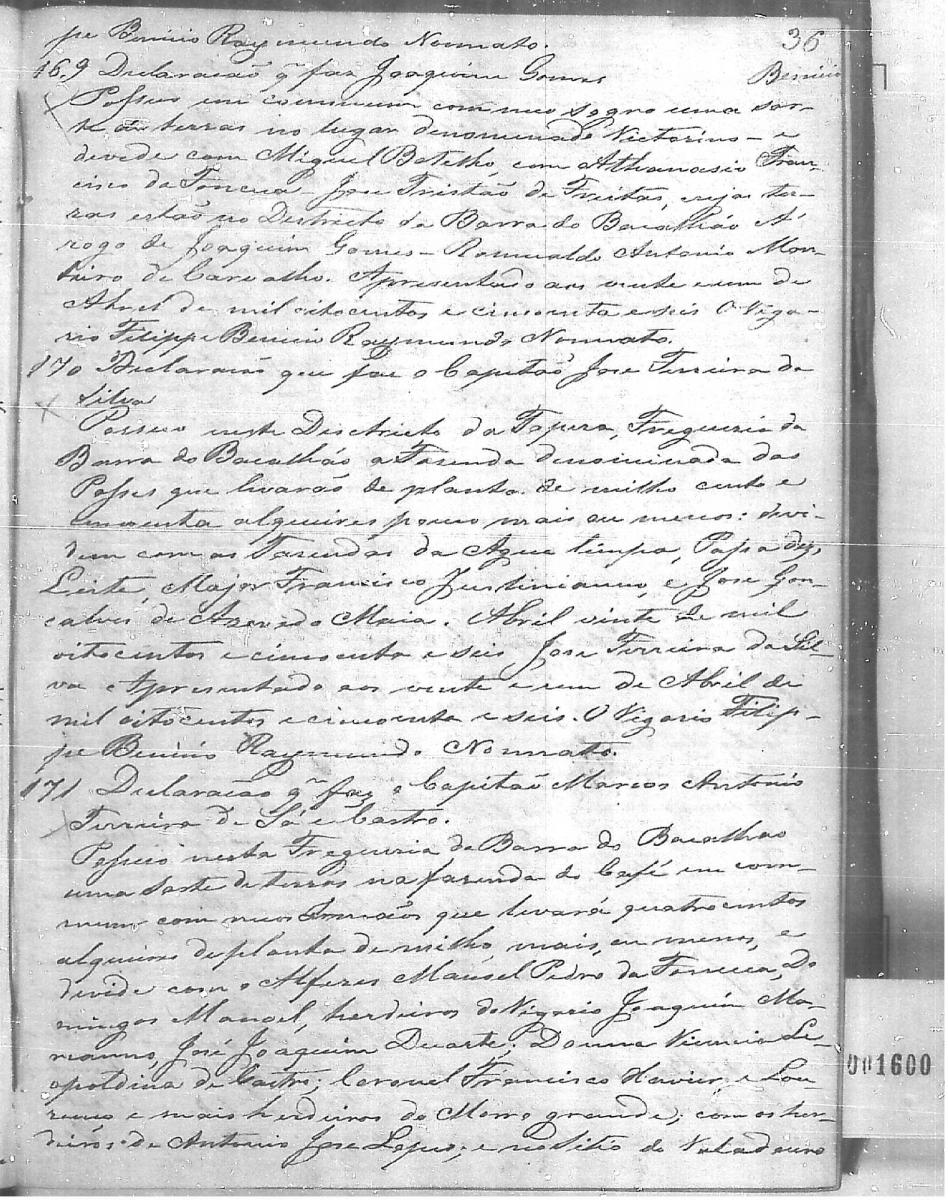 pe Benicio Raymundo Nonnato.
36
169 Declaração q' faz Joaquim Gomes Benicio
Possuo em commum com meu sogro uma sor-
te de terras no lugar denominado Victorino - e
devede com Miguel Botelho, com Athanasio Fran-
cisco da Fonceca - Jose Tristão de Freitas, cujas ter-
ras estão no Districto da Barra do Bacalháo A'
rogo de Joaquim Gomes - Romualdo Antonio Mon-
teiro de Carvalho. Apresentado aos vente e um de
Abril de mil oitocentos e cincoenta e seis O Viga-
rio Filippe Benicio Raymundo Nonnato.
170 Declaração que faz o Capitão Jose Ferreira da
Silva
Possuo neste Districto da Tapera, Freguezia da
Barra do Bacalháo a Fazenda denominada das
Posses que levarás de planta de milho cento e
cincoenta alqueires pouco mais ou menos: devi-
dem com as Fazendas da Agua limpa, Passa dez,
Leite, Major Francisco Justinianno, e Jose Gon-
calves de Azevedo Maia. Abril vinte de mil
oitocentos e cincoenta e seis Jose Ferreira da Sil-
va Apresentado aos vente e um de Abril de
mil oitocentos e cincoenta e seis. O Vigario Filip-
pe Benicio Raymundo Nonnato.
171 Declaração q' faz o Capitão Marcos Antonio
Ferreira de Sá e Castro.
Possuo nesta Freguezia da Barra do Bacalhao
uma Sorte de terras na fazenda do Café em com-
mum com meos Irmãos que levará quatrocentos
alqueires de planta de milho, mais, ou menos, e
devide com o Alferes Manoel Pedro da Fonceca, Do
mingos Manoel, herdeiros do Vigario Joaquim Ma-
rianno, José Joaquim Duarte; Donna Vicencia Le-
opoldina de Castro; Coronel Francisco Xavier, e Lou
renço e mais herdeiros do Morro grande; com os her-
deiros de Antonio Jose Lopes; e no Sitio do
001600